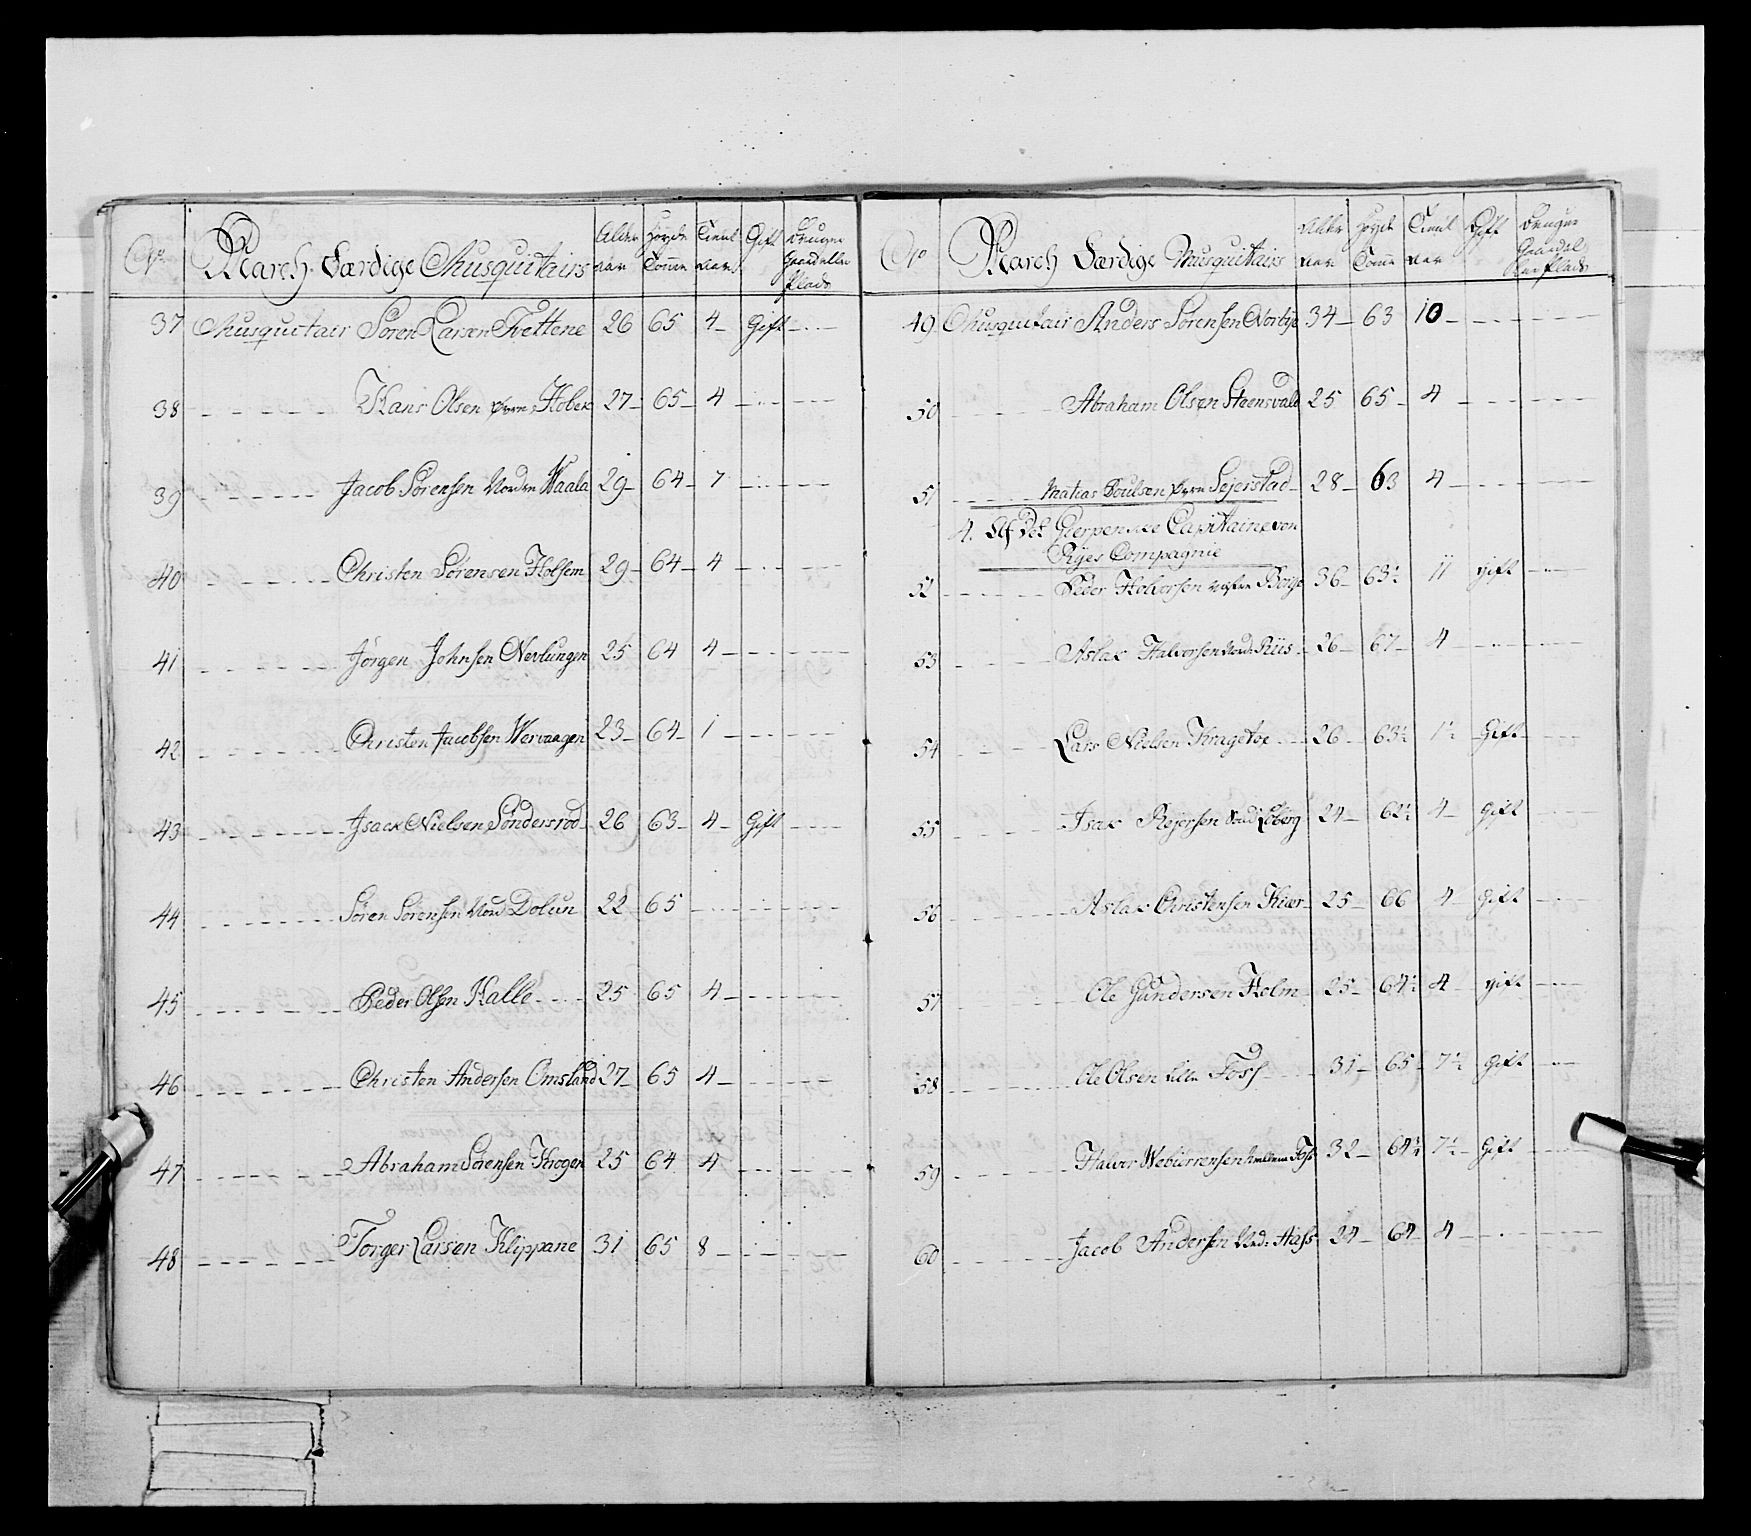 No March Færdige Musquitairs Alder aar Høyde Tomme Tient aar Gift Bruger Gaard eller Plads
37 Musquitair Søren Larsen Tvettene 26 65 4 Gift
38 Hans Olsen øvre Holek 27 65 4
39 Jacob Sørensen Nordre Waala 29 64 7
40 Christen Sørensen Holsem 29 64 4
41 Jørgen Johnsen Nevlungen 25 64 4
42 Christen Jacobsen Wervaagen 23 64 1
43 Isack Nielsen Søndersrød 26 63 4 Gift
44 Søren Sørensen Nord Dolun 22 65
45 Peder Olsen Kalle 25 65 4
46 Christen Andersen Omsland 27 65 4
47 Abraham Sørensen Krogen 25 64 4
48 Torger Larsen Klippane 31 65 8
No March Færdige Musquitairs Alder aar Høyde Tomme Tient aar Gift Bruger Gaard eller Plads
49 Musquitair Anders Sørensen Nortije 34 63 10
50 Abraham Olsen Steensvale 25 65 4
51 Matias Poulsen øvre Sejerstad 28 63 4
4. Af Det Gierpenske Capitaine von
Ryes Compagnie
52 Peder Holvorsen vestre Borge 36 63½ 11 gift
53 Aslak Halvorsen Nord: Riis 26 67 4
54 Lars Nielsen Kragetoe 26 63½ 1½ Gift
55 Isak Rejersen Løberg 24 62½ 4 gift
56 Aslak Christensen Kiær 25 66 4 Gift
57 Ole Gundersen Holm 25 64½ 4 gift
58 Ole Olsen Lille Foss 31 65½ 7½ Gift
59 Halvor Foss 32 64½ 7½ Gift
60 Jacob Andersen Nrd: Aass 24 64 4